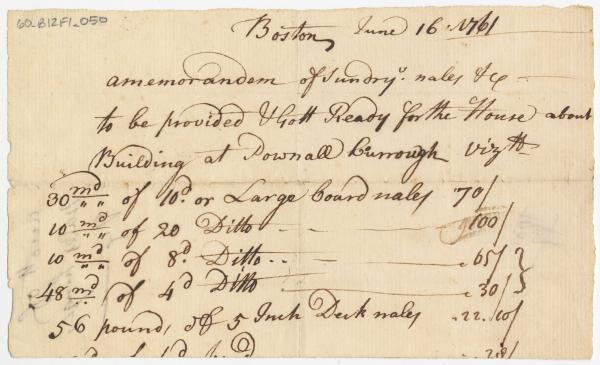 60-B12F1-050
Boston June 16 1761
a memorandem of Sundrys. nales &c
to be provided & Gott Ready for the House about
Building at Pownall Burrough vizt
30 md of 10d. or Large board nales 70/
10 md of 20 Ditto 100/
10 md of 8d. Ditto 65/
48 md of 4d Ditto 30/
56 pound, of 5 Inch Deck nales 22.10/